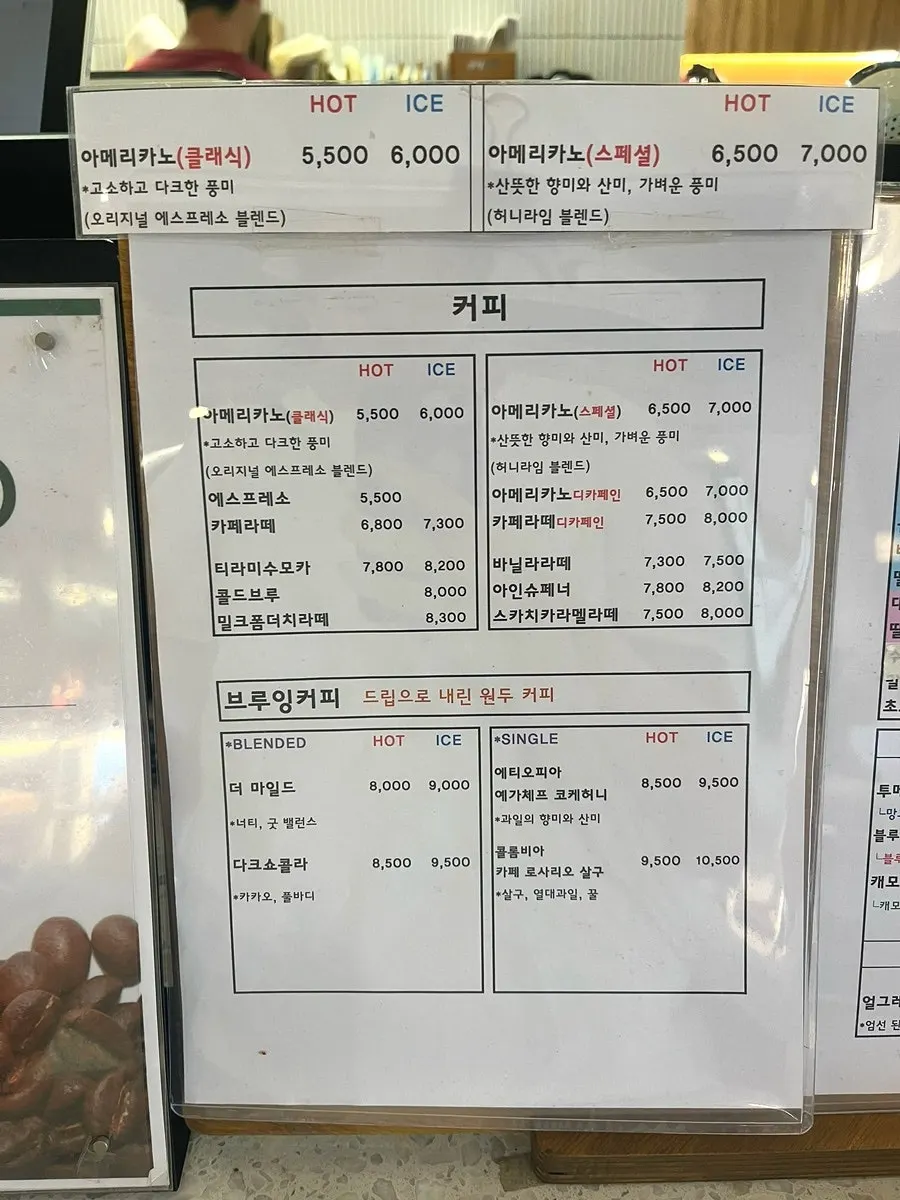 HOT ICE
아메리카노(클래식) 5,500 6,000
*고소하고 다크한 풍미
(오리지널 에스프레소 블렌드)
HOT ICE
아메리카노(스페셜) 6,500 7,000
*산뜻한 향미와 산미, 가벼운 풍미
(허니라임 블렌드)
커피
HOT ICE
아메리카노(클래식) 5,500 6,000
*고소하고 다크한 풍미
(오리지널 에스프레소 블렌드)
에스프레소 5,500
카페라떼 6,800 7,300
티라미수모카 7,800 8,200
콜드브루 8,000
밀크폼더치라떼 8,300
HOT ICE
아메리카노(스페셜) 6,500 7,000
*산뜻한 향미와 산미, 가벼운 풍미
(허니라임 블렌드)
아메리카노디카페인 6,500 7,000
카페라떼디카페인 7,500 8,000
바닐라라떼 7,300 7,500
아인슈페너 7,800 8,200
스카치카라멜라떼 7,500 8,000
브루잉커피 드립으로 내린 원두 커피
*BLENDED HOT ICE
더 마일드 8,000 9,000
*너티, 굿 밸런스
다크쇼콜라 8,500 9,500
*카카오, 풀바디
*SINGLE HOT ICE
에티오피아
예가체프 코케허니 8,500 9,500
*과일의 향미와 산미
콜롬비아
카페 로사리오 살구 9,500 10,500
*살구, 열대과일, 꿀
투메
블루
└블루
캐모
└캐모
얼그레
*엄선 된